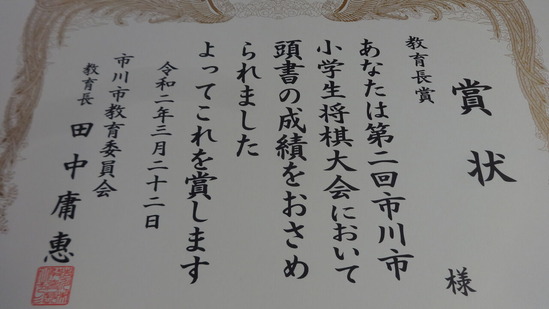 賞状
教育長賞
様
あなたは第二回市川市
小学生将棋大会において
頭書の成績をおさめ
られました
よってこれを賞します
令和二年三月二十二日
市川市教育委員会
教育長 田中庸惠